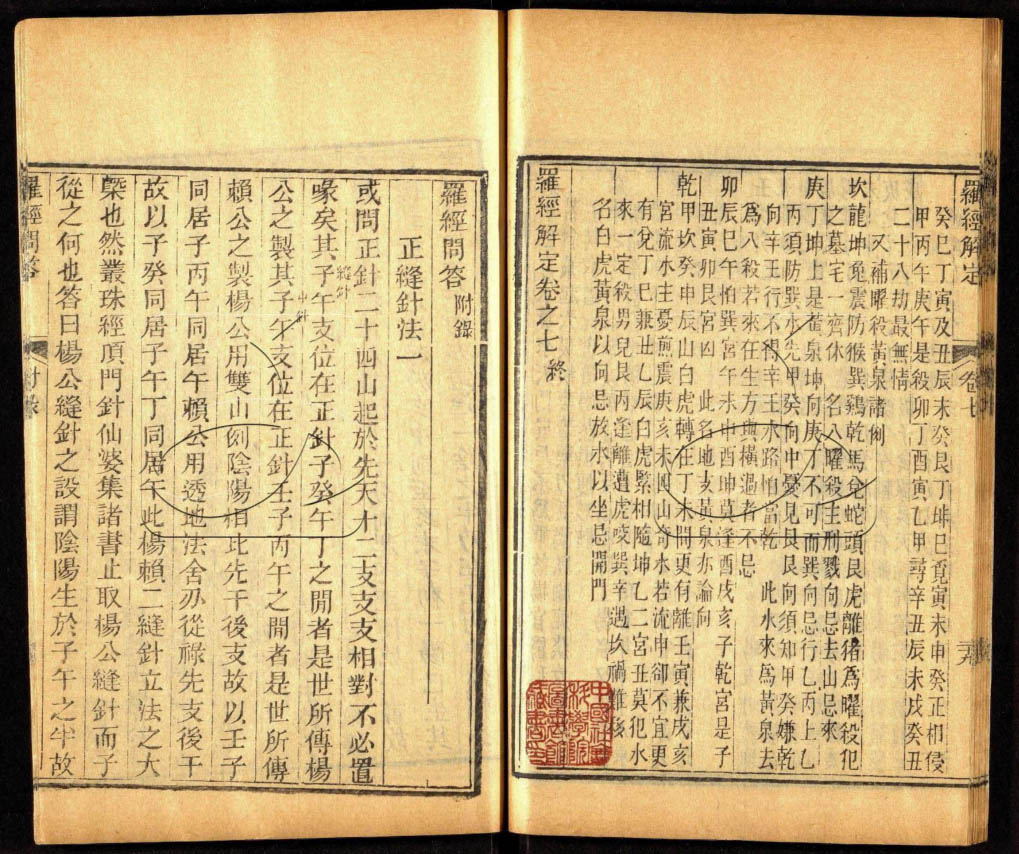 羅經解定 卷七
癸巳丁寅及丑辰未癸艮丁坤巳覓寅未申癸正相侵
甲丙午庚午是殺卯丁酉寅乙甲尋辛丑辰未戌癸丑
二十八劫最無情
又補曜殺黃泉諸例
坎龍坤兔震防猴巽鷄乾馬兌蛇頭艮虎離猪爲曜殺犯
之墓宅一齊休 名八曜殺主刑戮向忌去山忌來
庚丁坤上是黃泉坤向庚丁不可而巽向忌行乙丙上乙
丙須防巽水先甲癸向中憂見艮艮向須知甲癸嫌乾
向辛壬行不得辛壬水路怕當乾 此水來爲黃泉去
爲八殺若來在生方與橫過者不忌
卯辰巳午怕巽宮午未申酉坤莫逢酉戌亥子乾宮是子
丑寅卯艮宮凶 此名地支黃泉亦論向
乾甲坎癸申辰山白虎轉在丁未間更有離壬寅兼戌亥
宮流水主憂煎震庚亥未四山奇水若流申卻不宜更
有兌丁巳兼丑乙辰白虎緊相隨坤乙二宮丑莫犯水
來一定殺男兒艮丙逢離遭虎咬巽辛遇坎禍難移
名白虎黃泉以向忌放水以坐忌開門
羅經解定卷之七 終
羅經問答 附錄
正縫針法一
或問正針二十四山起於先天才二支支支相對不必置
喙矣其子午支位在正針子癸午丁之閒者是世所傳楊
縫針
公之製其子午支位在正針壬子丙午之閒者是世所傳
中針
賴公之製楊公用雙山例陰陽相比先干後支故以壬子
同居子丙午同居午賴公用透地法舍刃從祿先支後干
故以子癸同居子午丁同居午此楊賴二縫針立法之大
槩也然叢珠經頂門針仙婆集諸書止取楊公縫針而子
從之何也答曰楊公縫針之設謂陰陽生於子午之半故
羅經問答 附錄